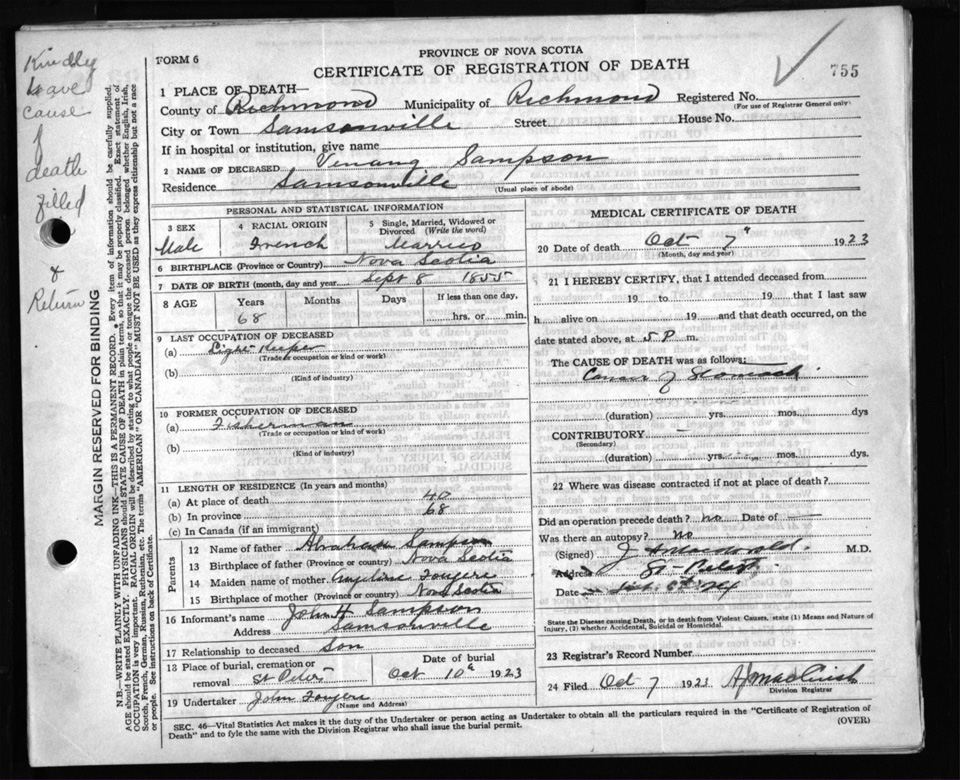 Kindly
have
cause
of
death
filled
&
Return
MARGIN RESERVED FOR BINDING
N.B.—WRITE PLAINLY WITH UNFADING INK—THIS IS A PERMANENT RECORD. Every item of information should be carefully supplied.
AGE should be stated EXACTLY. PHYSICIANS should STATE CAUSE OF DEATH in plain terms, so that it may be properly classified. Exact statement of
OCCUPATION is very important. RACIAL ORIGIN will be described by stating to what people or tongue the deceased person belonged whether English, Irish,
Scotch, French, German, Russian, Ruthenian, etc. The terms "AMERICAN" OR "CANADIAN" MUST NOT BE USED as they express citizenship but not a race
or people. See instructions on back of Certificate.
FORM 6
PROVINCE OF NOVA SCOTIA
CERTIFICATE OF REGISTRATION OF DEATH
755
1 PLACE OF DEATH—
County of Richmond Municipality of Richmond Registered No.
(For use of Registrar General only)
City or Town Samsonville Street House No.
If in hospital or institution, give name
2 NAME OF DECEASED Sampson
Residence Samsonville
(Usual place of abode)
PERSONAL AND STATISTICAL INFORMATION
3 SEX Male
4 RACIAL ORIGIN French
5 Single, Married, Widowed or Divorced (Write the word) Married
6 BIRTHPLACE (Province or Country) Nova Scotia
7 DATE OF BIRTH (month, day and year) Sept 8 1855
8 AGE Years Months Days If less than one day,
68 hrs. or min.
9 LAST OCCUPATION OF DECEASED
(a) Light Keeper
(Trade or occupation or kind or work)
(b)
(Kind of industry)
10 FORMER OCCUPATION OF DECEASED
(a) Fisherman
(Trade or occupation or kind of work)
(b)
(Kind of industry)
11 LENGTH OF RESIDENCE (In years and months)
(a) At place of death 40
(b) In province 68
(c) In Canada (if an immigrant)
Parents
12 Name of father Abraham Sampson
13 Birthplace of father (Province or Country) Nova Scotia
14 Maiden name of mother Fougere
15 Birthplace of mother (Province or Country) Nova Scotia
16 Informant's name John H Sampson
Address Samsonville
17 Relationship to deceased Son
18 Place of burial, cremation or removal St Peters
Date of burial
Oct 10th 1923
19 Undertaker John Fougere
(Name and Address)
MEDICAL CERTIFICATE OF DEATH
20 Date of death Oct 7th 1923
(Month, day and year)
21 I HEREBY CERTIFY, that I attended deceased from
19 to 19 that I last saw
h alive on 19 and that death occurred, on the
date stated above, at 5 P. m.
The CAUSE OF DEATH was as follows:
Cancer of Stomach
(duration) yrs. mos. dys
CONTRIBUTORY
(Secondary)
(duration) yrs. mos. dys.
22 Where was disease contracted if not at place of death?
Did an operation precede death? no Date of
Was there an autopsy? no
(Signed) M.D.
Address St.
Date
State the Disease causing Death, or in death from Violent Causes, state (1) Means and Nature of
Injury, (2) whether Accidental, Suicidal or Homicidal.
23 Registrar's Record Number
24 Filed Oct 7 1923
Division Registrar
SEC. 46—Vital Statistics Act makes it the duty of the Undertaker or person acting as Undertaker to obtain all the particulars required in the "Certificate of Registration of
Death" and to fyle the same with the Division Registrar who shall issue the burial permit. (OVER)